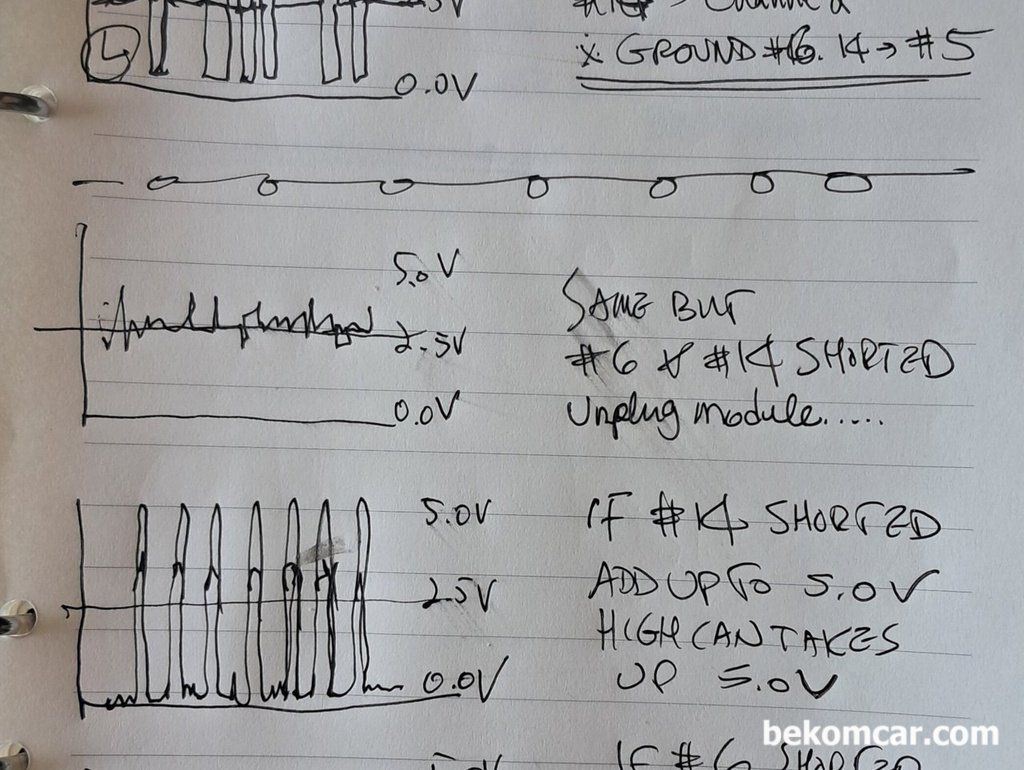 5V
L
0.0V
Channel 2
※ GROUND #6. 14 → #5
5.0V
2.5V
0.0V
SAME BUT
#6 & #14 SHORTED
Unplug module.....
5.0V
2.5V
0.0V
IF #14 SHORTED
ADD UP TO 5.0V
HIGH CAN TAKES
UP 5.0V
IF #6 SHORTED
bekomcar.com